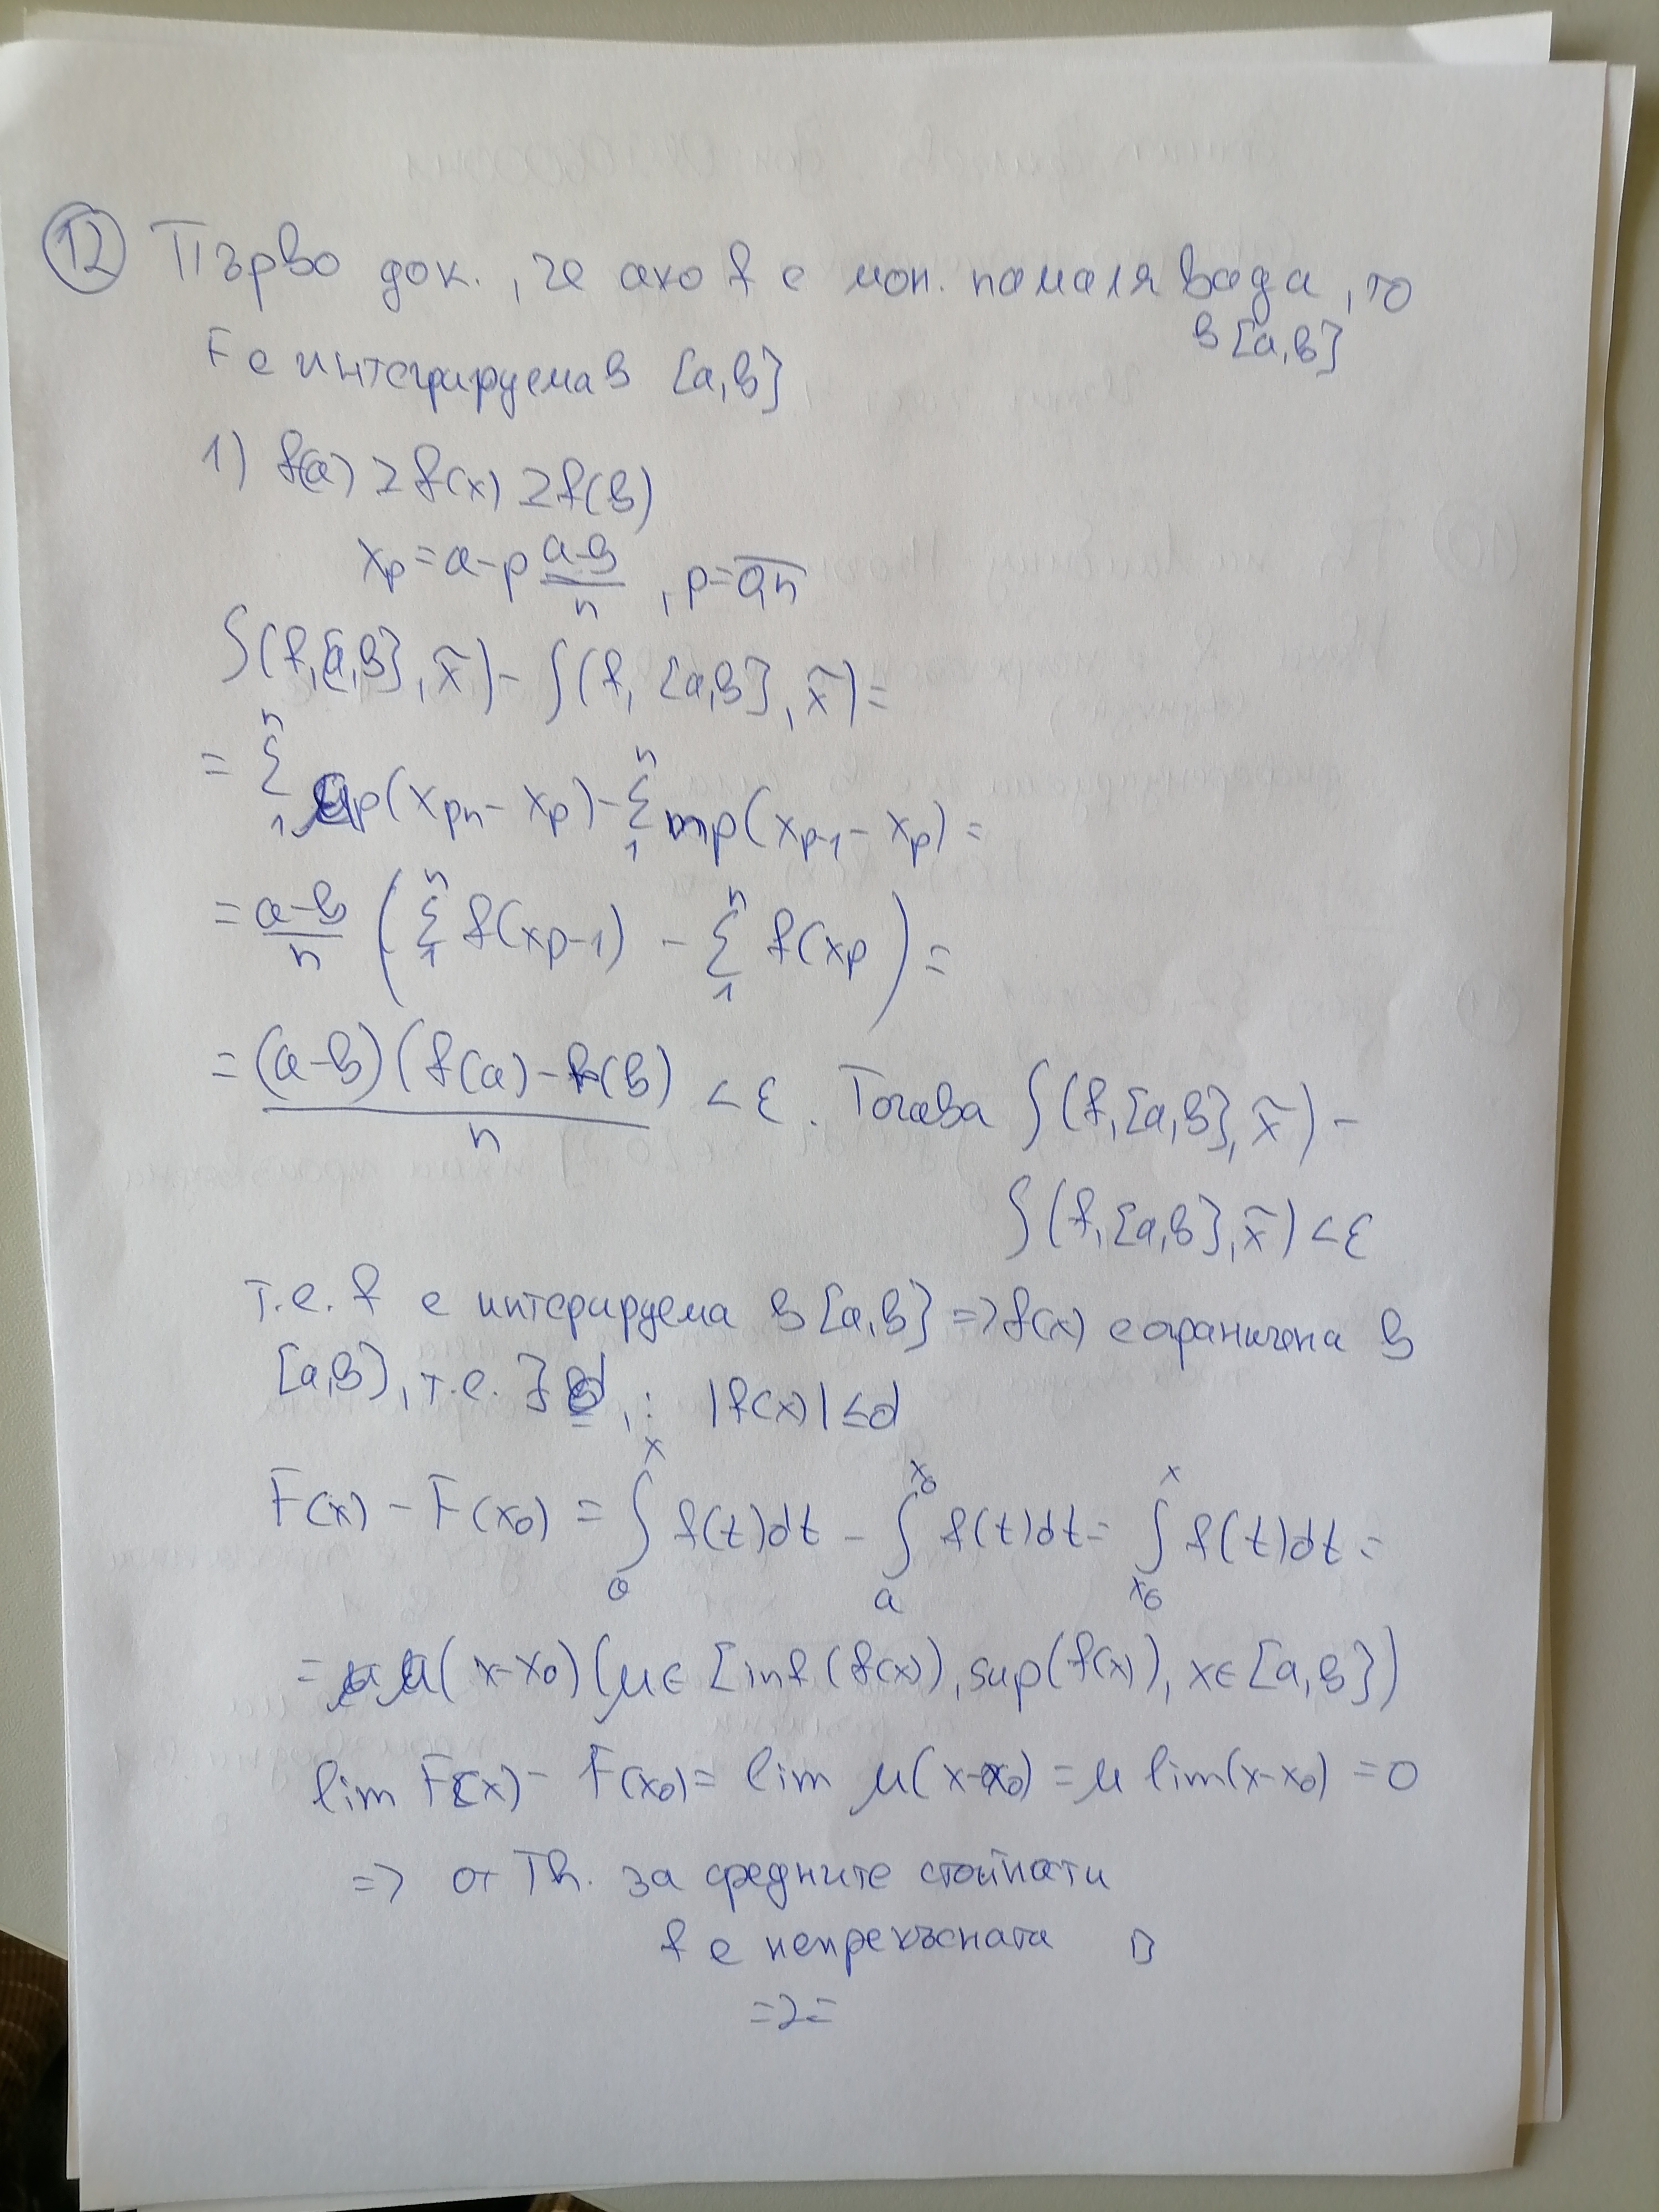 12 Първо док., че ако f е мон. намаляваща, то
в [a,b]
F е интегрируема в [a,b]
1) f(a) ≥ f(x) ≥ f(b)
x_p = a - p (a-b)/n, p = 0,n
∫(f,[a,b], x̃) - ∫(f, [a,b], x̃) =
= Σ_1^n μp(x_pn - x_p) - Σ_1^n mp(x_p-1 - x_p) =
= (a-b)/n (Σ_1^n f(x_p-1) - Σ_1^n f(x_p) =
= (a-b)(f(a) - f(b)) / n < ε. Тогава ∫(f,[a,b], x̃) -
∫(f,[a,b], x̃) < ε
т.е. f е интегрируема в [a,b] => f(x) е ограничена в
[a,b], т.е. ∃ d, : |f(x)| ≤ d
F(x) - F(x₀) = ∫_a^x f(t)dt - ∫_a^x₀ f(t)dt = ∫_x₀^x f(t)dt =
= μ(x-x₀) (μ ∈ [inf(f(x)), sup(f(x)), x ∈ [a,b])
lim F(x) - F(x₀) = lim μ(x-x₀) = μ lim(x-x₀) = 0
=> от Th. за средните стойнати
f е непрекъсната
=2=